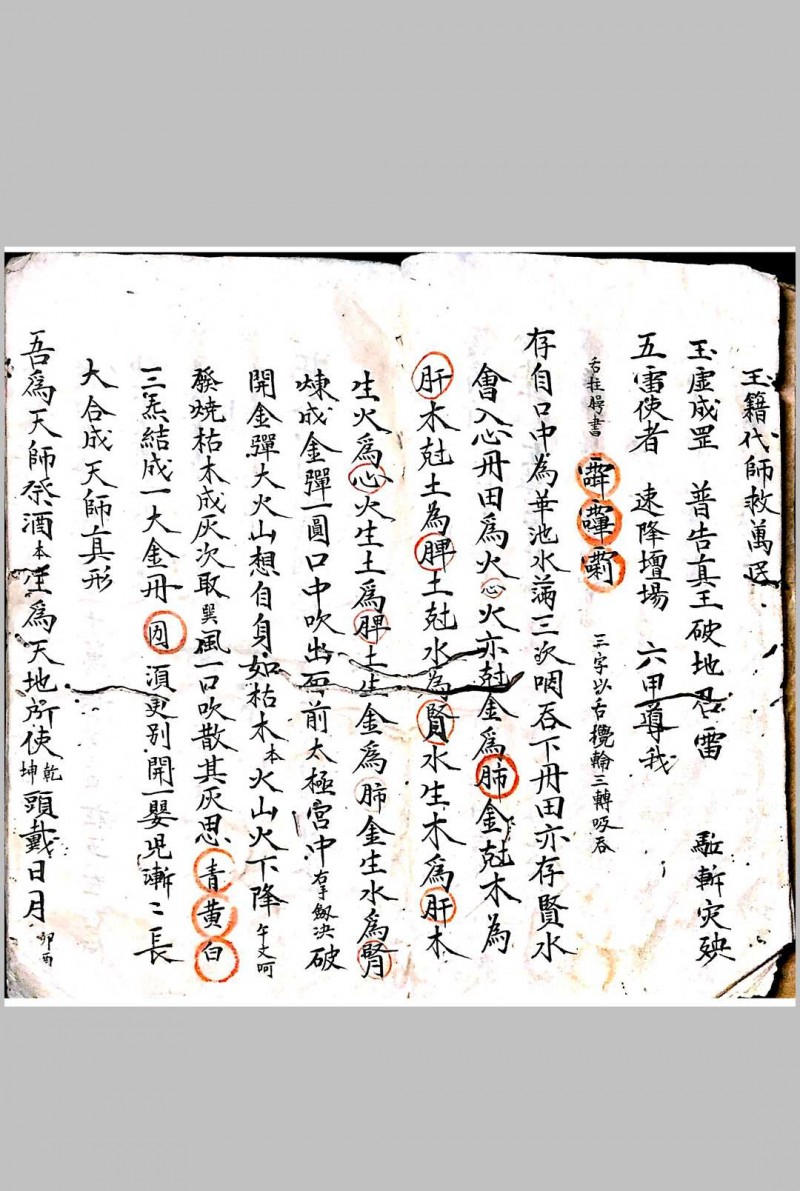 玉籍代師救萬民
玉虛成罡 普告真王破地召雷 斬灾殃
五雷使者 速降壇場 六甲導我
舌拄腭書 霹 三字以舌攪輪三轉吸吞
存自口中為華池水滿三次咽吞下丹田亦存腎水
會入心丹田為火心火亦尅金為肺金尅木為
肝木尅土為脾土尅水為腎水生木為肝木
生火為心火生土為脾土生金為肺金生水為腎
煉成金彈一圓口中吹出面前太極宮冲右手劔决破
開金彈大火山想自身如枯木本火山火下降午文呵
發燒枯木成灰次取巽風一口吹散其灰思青黃白
三炁結成一大金丹囙須更別開一嬰児漸〻長
大合成天師真形
吾為天師祭酒本生為天地所使乾坤頭戴日月卯酉